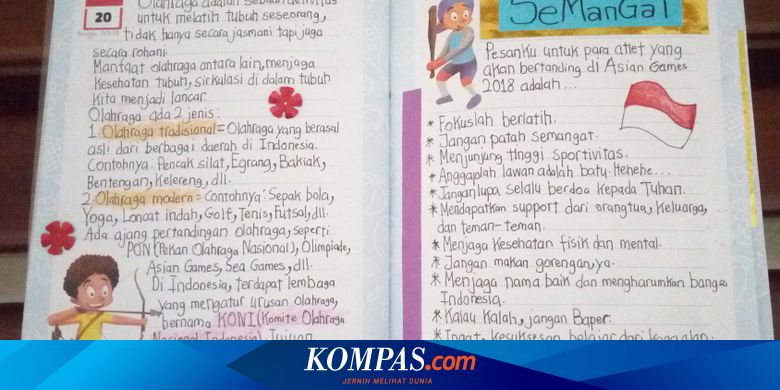 20
Olahraga adalah sebuah aktivitas
untuk melatih tubuh seseorang,
tidak hanya secara jasmani tapi juga
secara rohani.
Manfaat olahraga antara lain, menjaga
Kesehatan tubuh, sirkulasi di dalam tubuh
Kita menjadi lancar.
Olahraga ada 2 jenis:
1. Olahraga tradisional = Olahraga yang berasal
asli dari berbagai daerah di Indonesia.
Contohnya: Pencak silat, Egrang, Bakiak,
Bentengan, Kelereng, dll.
2. Olahraga modern = Contohnya: Sepak bola,
Yoga, Loncat indah, Golf, Tenis, Futsal, dll.
Ada ajang pertandingan olahraga, seperti
PON (Pekan Olahraga Nasional), Olimpiade,
Asian Games, Sea Games, dll.
Di Indonesia, terdapat lembaga
yang mengatur urusan olahraga,
bernama KONI (Komite Olahraga
Nasional Indonesia). Tujuan
SeManGaT
Pesanku untuk para atlet yang
akan bertanding di Asian Games
2018 adalah...
* Fokuslah berlatih.
* Jangan patah semangat.
* Menjunjung tinggi sportivitas.
* Anggaplah lawan adalah batu. Hehehe...
* Jangan lupa selalu berdoa kepada Tuhan.
* Mendapatkan support dari orangtua, keluarga,
dan teman-teman.
* Menjaga kesehatan fisik dan mental.
* Jangan makan gorengan, ya.
* Menjaga nama baik dan mengharumkan bangsa
Indonesia.
* Kalau Kalah, jangan Baper.
* Ingat, kesuksesan belajar dari kegagalan.
KOMPAS.com
JERNIH MELIHAT DUNIA